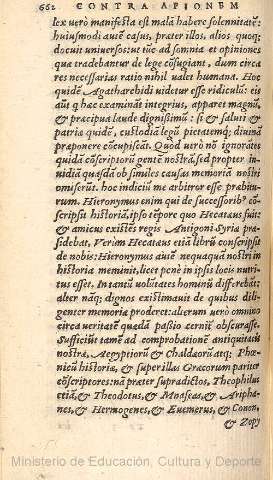 662 CONTRA APIONEM
lex uerò manifesta est malā habere solennitatē:
huiusmodi autē casus, præter illos, alios quoq;
docuit uniuersos: ut tūc ad somnia et opiniones
quæ tradebantur de lege cōfugiant, dum circa
res necessarias ratio nihil ualet humana. Hoc
quidē Agatharchidi uidetur esse ridiculū: his
aūt q hæc examināt integrius, apparet magnū,
& præcipua laude dignissimū: si & saluti &
patria quidē, custodiā legū pietatemq; diuinā
præponere cōcupiscāt. Quod uerò nō ignorātes
quidā cōscriptorū gentē nostrā, sed propter in
uidiā quasdā ob similes causas memoriā nostrī
omiserūt. hoc indiciū me arbitror esse præbitu
rum. Hieronymus enim qui de successorib⁹ cō
scripsit historiā, ipso tēpore quo Hecatæus fuit:
& amicus existēs regis Antigoni Syria præ
sidebat, Verùm Hecatæus etiā librū conscripsit
de nobis: Hieronymus autē nequaquā nostri in
historia meminit, licet penè in ipsis locis nutri
tus esset. In tantū uolūtates hominū differebāt:
alter nāq; dignos existimauit de quibus dili-
genter memoriā proderet: alterum uerò omnino
circa ueritatē quædā passio cernitur obscurasse.
Sufficiūt tamē ad comprobationē antiquitatis
nostræ, Aegyptiorū & Chaldæorū atq; Phœ
nicū historiæ, & super illas Græcorum pariter
cōscriptores: nā præter suprà dictos, Theophilus
etiā, & Theodotus, & Mnaseas, & Aripha-
nes, & Hermogenes, & Euemerus, & Conon,
& Zopy
Ministerio de Educación, Cultura y Deporte